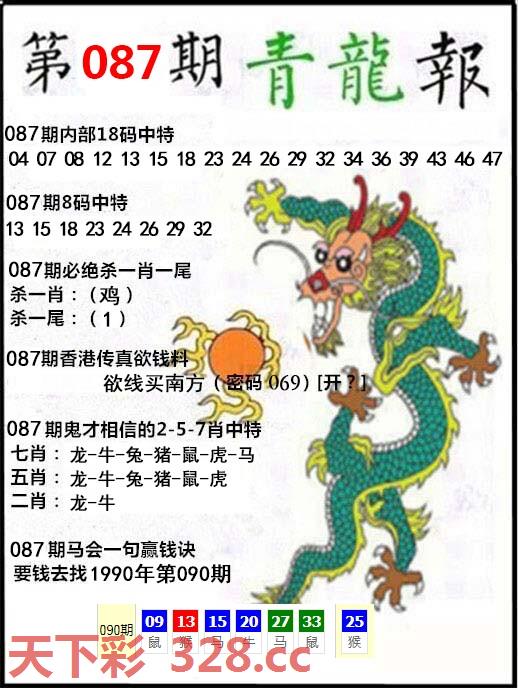 第087期青龍報
087期内部18码中特
04 07 08 12 13 15 18 23 24 26 29 32 34 36 39 43 46 47
087期8码中特
13 15 18 23 24 26 29 32
087期必绝杀一肖一尾
杀一肖：（鸡）
杀一尾：（1）
087期香港传真欲钱料
欲线买南方（密码 069）[开？]
087期鬼才相信的2-5-7肖中特
七肖：龙-牛-兔-猪-鼠-虎-马
五肖：龙-牛-兔-猪-鼠-虎
二肖：龙-牛
087期马会一句赢钱诀
要钱去找1990年第090期
090期 09 13 15 20 27 33 25
鼠 猴 马 牛 马 鼠 猴
天下彩 328.cc